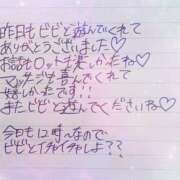 昨日もビビと遊んでくれて
ありがとうございました♡
お話もロットも楽しかったね♡
マッサージ喜んでくれて
嬉しかったです!!
またビビと遊んでくださいね♡
今日も12時〜なので
ビビとイチャイチャしよ??